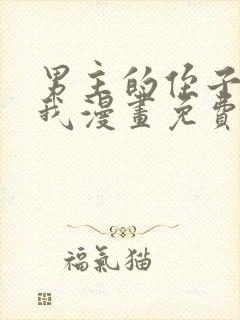 男主的侄子
我漫畫免費
福氣猫